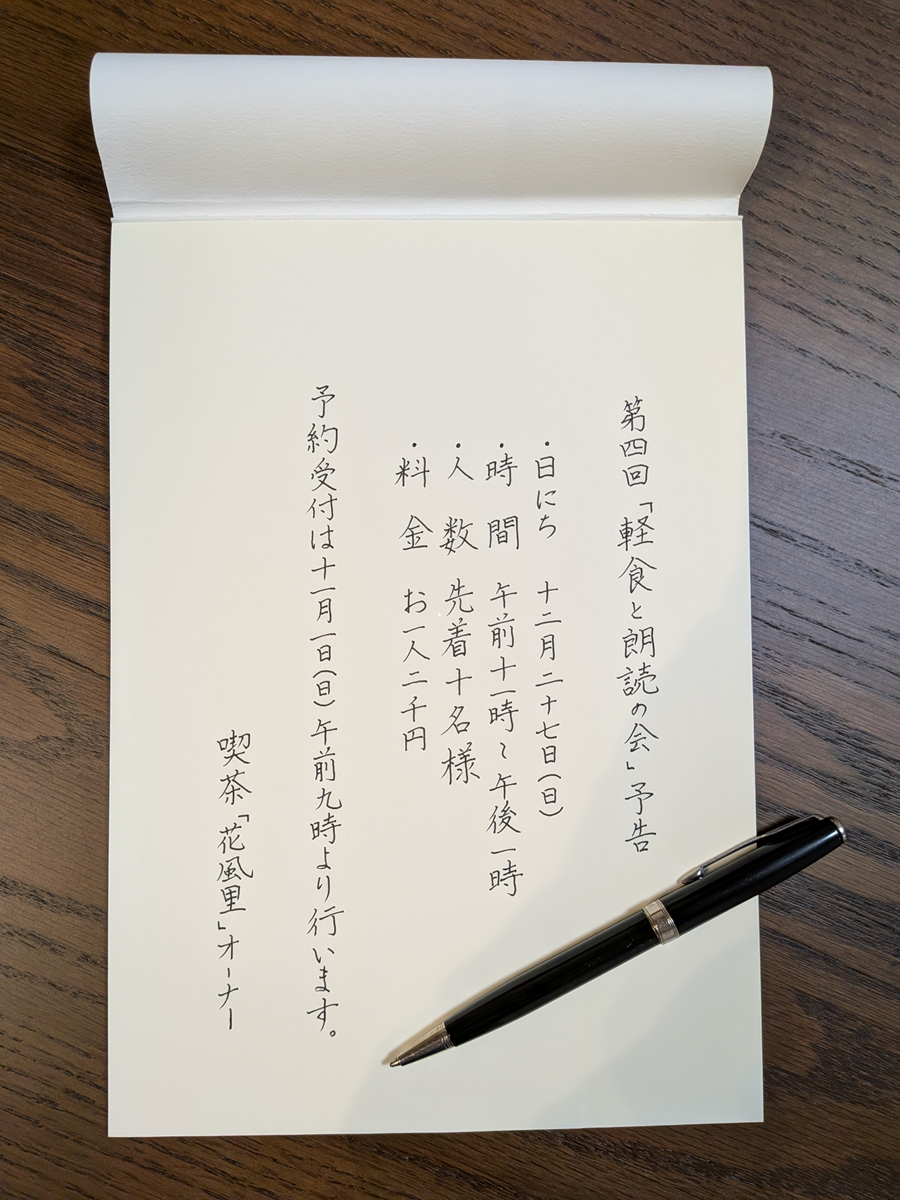 第四回「軽食と朗読の会」予告
・日にち　十二月二十七日（日）
・時　間　午前十一時～午後一時
・人　数　先着十名様
・料　金　お一人二千円
予約受付は十一月一日（日）午前九時より行います。
喫茶「花風里」オーナー